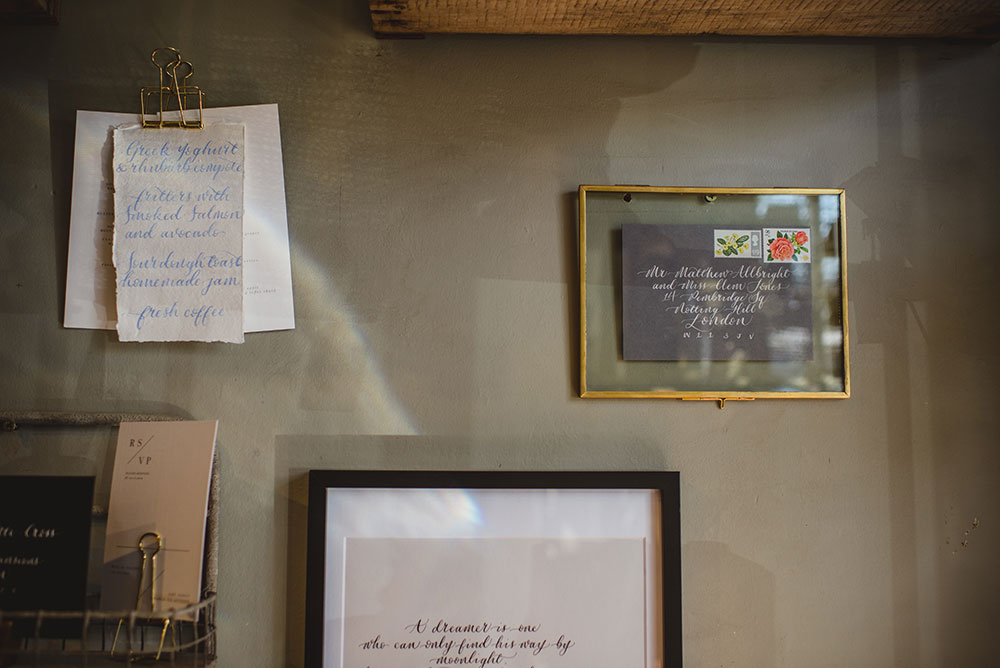 Greek Yoghurt
& rhubarb compote
fritters with
Smoked Salmon
and avocado
Sourdough toast
homemade jam
fresh coffee
Mr Matthew Allbright
and Miss Clem Jones
1A Pembridge Sq
Notting Hill
London
RS/
VP
A dreamer is one
who can only find his way by
moonlight.